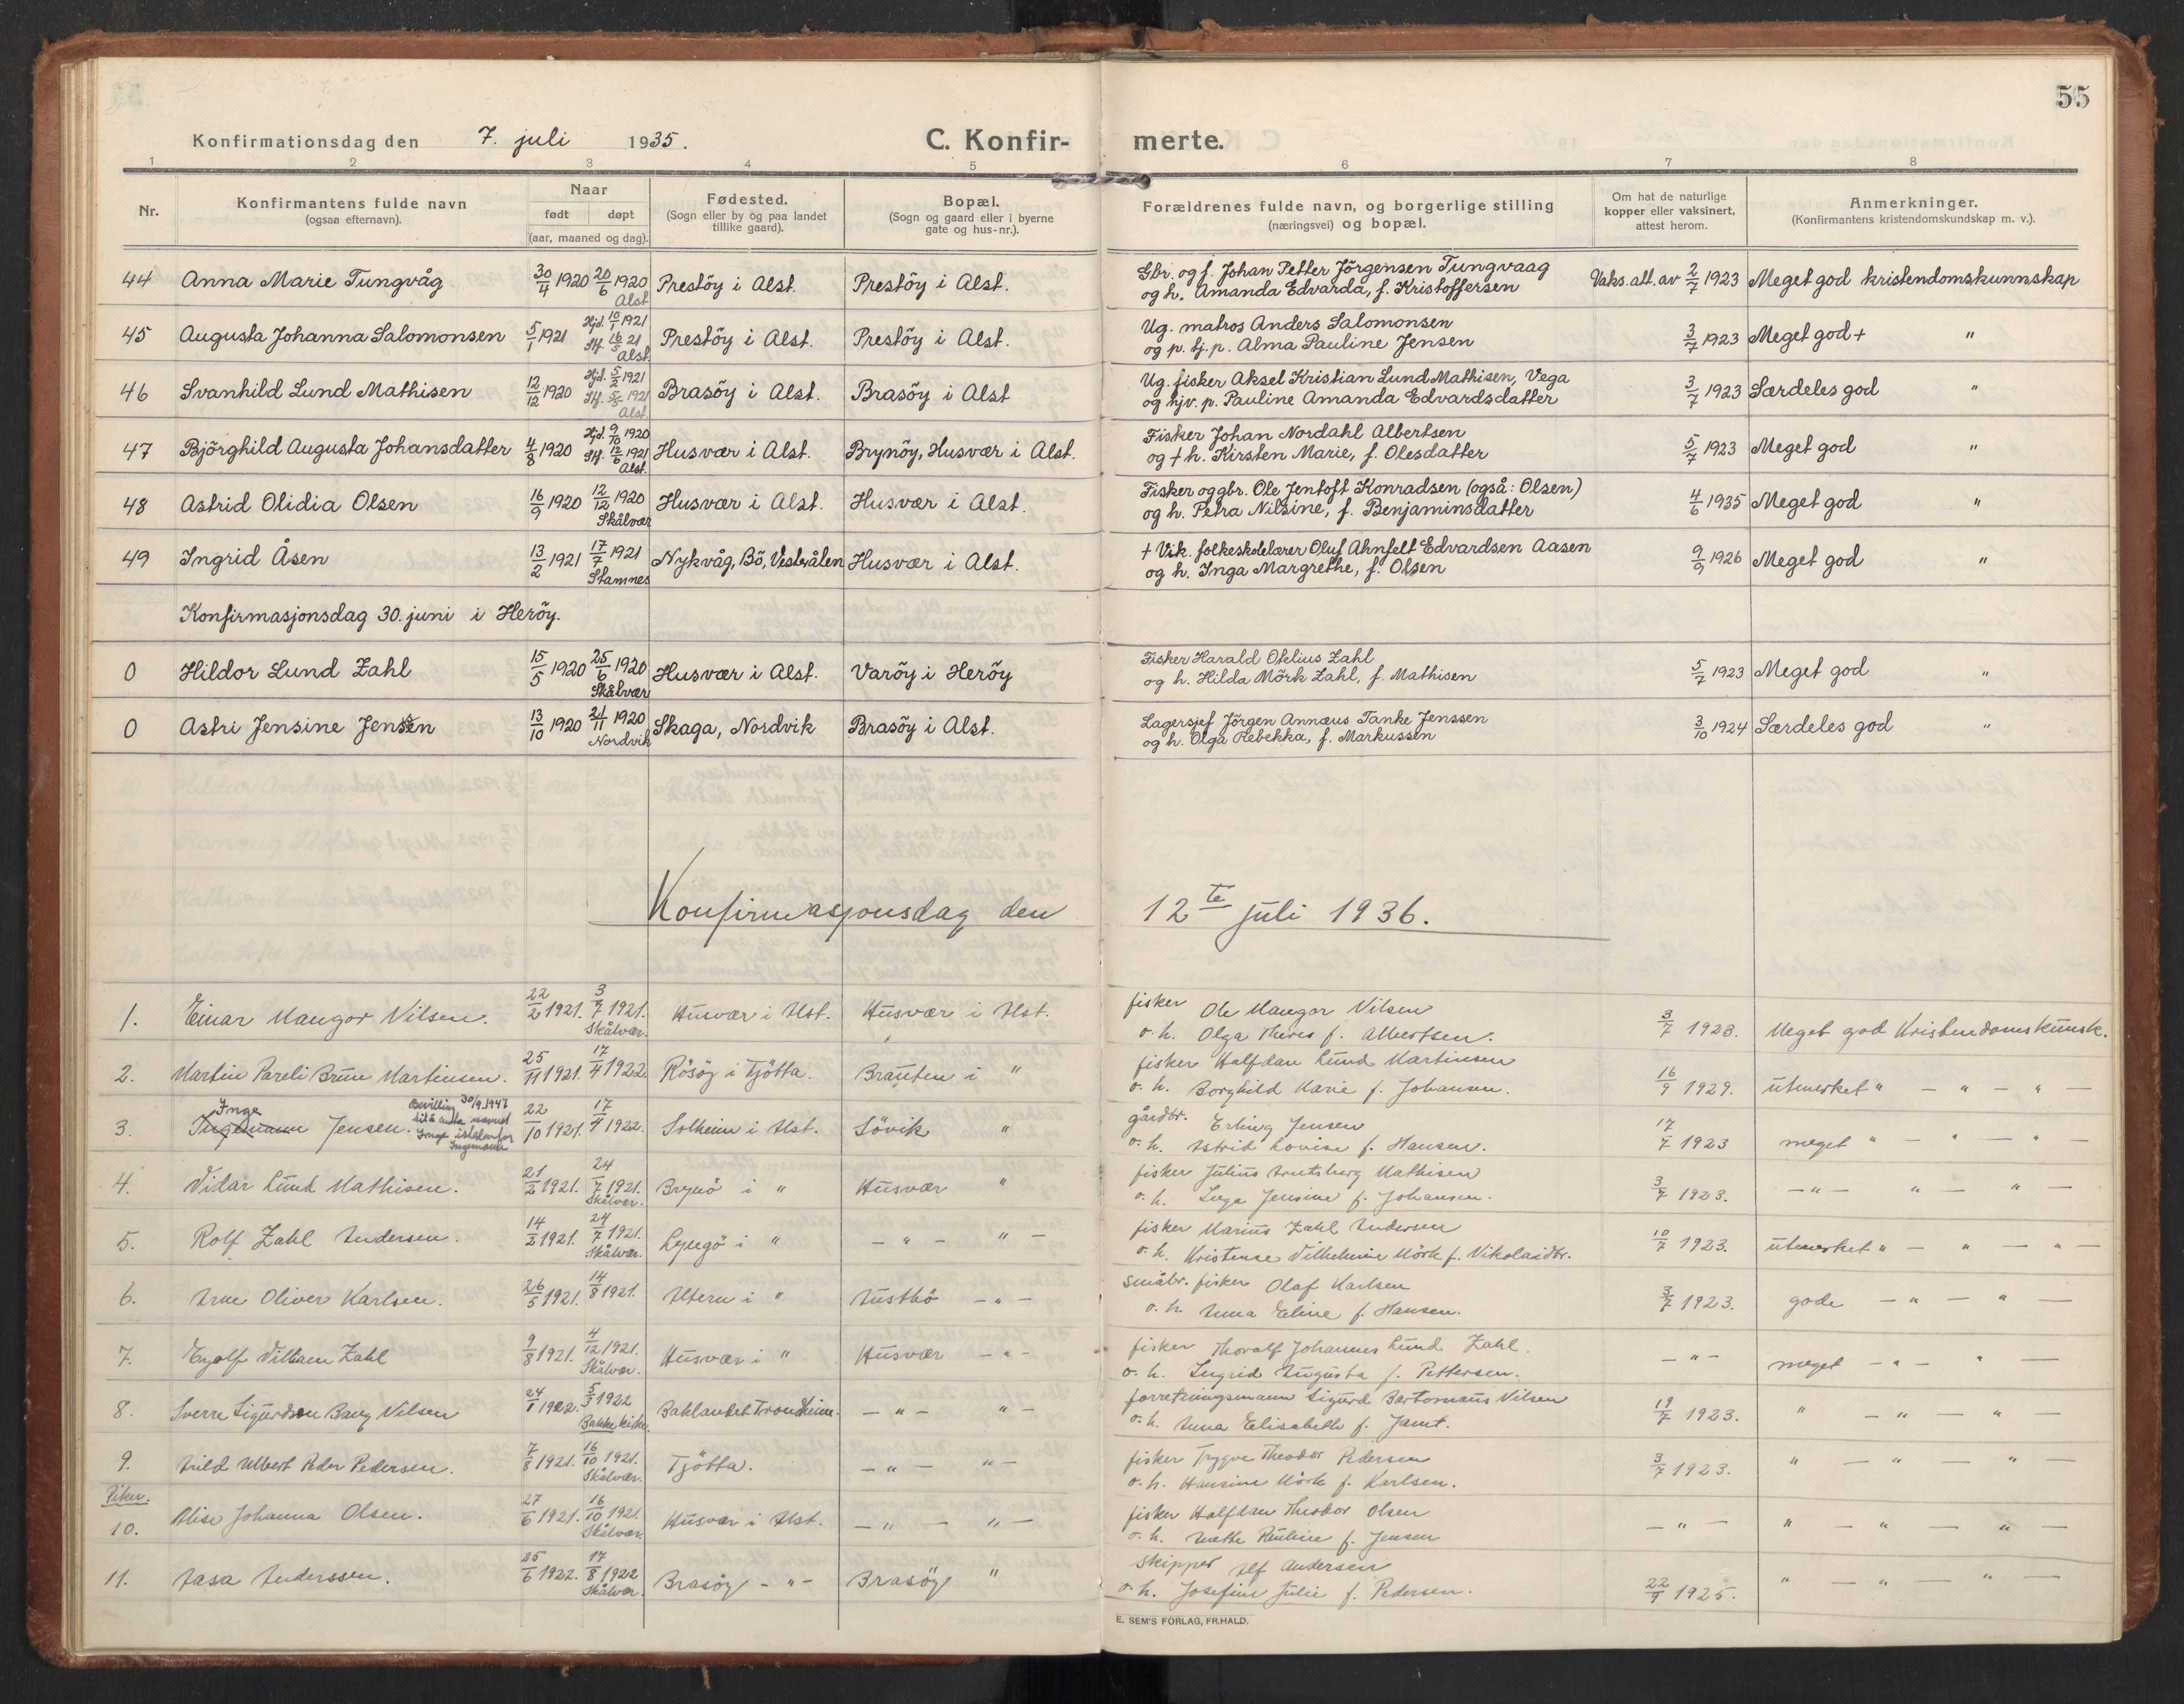 55
Konfirmationsdag den 7. juli 1935. C. Konfir- merte.
1 2 3 4 5 6 7 8
Nr. Konfirmantens fulde navn (ogsaa efternavn). Naar født døpt (aar, maaned og dag). Fødested. (Sogn eller by og paa landet tillike gaard). Bopæl. (Sogn og gaard eller i byerne gate og hus-nr.). Forældrenes fulde navn, og borgerlige stilling (næringsvei) og bopæl. Om hat de naturlige kopper eller vaksinert, attest herom. Anmerkninger. (Konfirmantens kristendomskundskap m. v.).
44 Anna Marie Tungvåg 30/4 1920 20/6 1920 Alst. Prestöy i Alst. Prestöy i Alst. Gbr. og f. Johan Petter Jörgensen Tungvaag
og h. Amanda Edvarda, f. Kristoffersen Vaks. att. av 2/7 1923 Meget god kristendomskunnskap
45 Augusta Johanna Salomonsen 5/1 1921 Hjd. 10/1 1921 Stf. 16/5 21 Alst. Prestöy i Alst. Prestöy i Alst. Ug. matros Anders Salomonsen
og p. tj. p. Alma Pauline Jensen 3/7 1923 Meget god + "
46 Svanhild Lund Mathisen 12/12 1920 Hjd. 5/2 1921 Stf. 5/5 1921 Alst. Brasöy i Alst. Brasöy i Alst Ug. fisker Aksel Kristian Lund Mathisen, Vega
og hjv. p. Pauline Amanda Edvardsdatter 3/7 1923 Særdeles god "
47 Björghild Augusta Johansdatter 4/8 1920 Hjd. 9/10 1920 Stf. 12/6 1921 Alst. Husvær i Alst. Brynöy, Husvær i Alst. Fisker Johan Nordahl Albertsen
og + h. Kirsten Marie, f. Olesdatter 5/7 1923 Meget god "
48 Astrid Olidia Olsen 16/9 1920 12/12 1920 Skålvær Husvær i Alst. Husvær i Alst. Fisker og gbr. Ole Jentoft Konradsen (også: Olsen)
og h. Petra Nilsine, f. Benjaminsdatter 4/6 1935 Meget god "
49 Ingrid Åsen 13/2 1921 17/7 1921 Stamnes Nykvåg, Bö, Vesterålen Husvær i Alst. + Vik. folkeskolelærer Oluf Ahnfelt Edvardsen Aasen
og h. Inga Margrethe, f. Olsen 9/9 1926 Meget god "
Konfirmasjonsdag 30. juni i Heröy.
0 Hildor Lund Zahl 15/5 1920 25/6 1920 Skålvær Husvær i Alst. Varöy i Heröy Fisker Harald Otelius Zahl
og h. Hilda Mörk Zahl, f. Mathisen 5/7 1923 Meget god "
0 Astri Jensine Jenssen 13/10 1920 21/11 1920 Nordvik Skaga, Nordvik Brasöy i Alst. Lagersjef Jörgen Annæus Tanke Jenssen
og h. Olga Rebekka, f. Markussen 3/10 1924 Særdeles god "
Konfirmasjonsdag den 12te juli 1936.
1. Einar Mangor Nilsen. 22/2 1921. 3/7 1921. Skålvær. Husvær i Alst. Husvær i Alst. fisker Ole Mangor Nilsen
o. h. Olga Theres f. Albertsen. 3/7 1923. Meget god Kristendomskunsk.
2. Martin Pareli Brun Martinsen. 25/11 1921. 17/4 1922. Rösöy i Tjötta. Brauten i " fisker Halfdan Lund Martinsen
o. h. Borghild Marie f. Johansen. 16/9 1929. utmerket " — " — " —
3. Inge Ingemann Jensen. Bevilling 30/9.1947 til å anta navnet Inge istedenfor Ingemann 22/10 1921. 17/4 1922. Solheim i Alst. Sövik " gårdbr. Erling Jensen
o. h. Astrid Lovise f. Hansen. 17/7 1923 meget " — " — " —
4. Vidar Lund Mathisen. 21/2 1921. 24/7 1921. Skålvær. Brynö i " Husvær " fisker Julius Arntsberg Mathisen
o. h. Inga Jensine f. Johansen. 3/7 1923. — " — " — " —
5. Rolf Zahl Andersen. 14/2 1921. 24/7 1921. Skålvær. Lyngö i " — " — " — fisker Marius Zahl Andersen
o. h. Kristense Vilhelmine Mörk f. Nikolaidtr. 10/7 1923. utmerket " — " — " —
6. Arne Oliver Karlsen. 26/5 1921. 14/8 1921. Altern i " Austbö — " — småbr. fisker Olaf Karlsen
o. h. Anna Eline f. Hansen. 3/7 1923. gode — " — " —
7. Eyolf William Zahl 9/8 1921. 4/12 1921. Skålvær. Husvær i " Husvær — " — fisker Thoralf Johannes Lund Zahl.
o. h. Ingrid Augusta f. Pettersen. — " — meget — " — " —
8. Sverre Sigurdson Bang Nilsen 24/1 1922. 5/3 1922 Bakke kirke. Baklandet Trondheim. — " — " — forretningsmann Sigurd Bartomæus Nilsen
o. h. Anna Elisabeth f. Jamt. 19/7 1923. " — " — " —
9. Arild Albert Peder Pedersen. 7/8 1921. 16/10 1921. Skålvær. Tjötta. — " — " — fisker Trygve Theodor Pedersen
o. h. Hansine Mörk f. Karlsen. 3/7 1923. " — " — " —
Piker.
10. Alise Johanna Olsen. 27/6 1921. 16/10 1921. Skålvær Husvær i Alst. — " — " — fisker Halfdan Theodor Olsen
o. h. Anette Pauline f. Jensen — " — " — " — " —
11. Aasa Anderssen. 25/6 1922. 17/8 1922 Skålvær. Brasöy — " — Brasöy " skipper Alf Andersen
o. h. Josefine Julie f. Pedersen. 22/9 1925. " — " — " —
E. SEM'S FORLAG, FR.HALD.